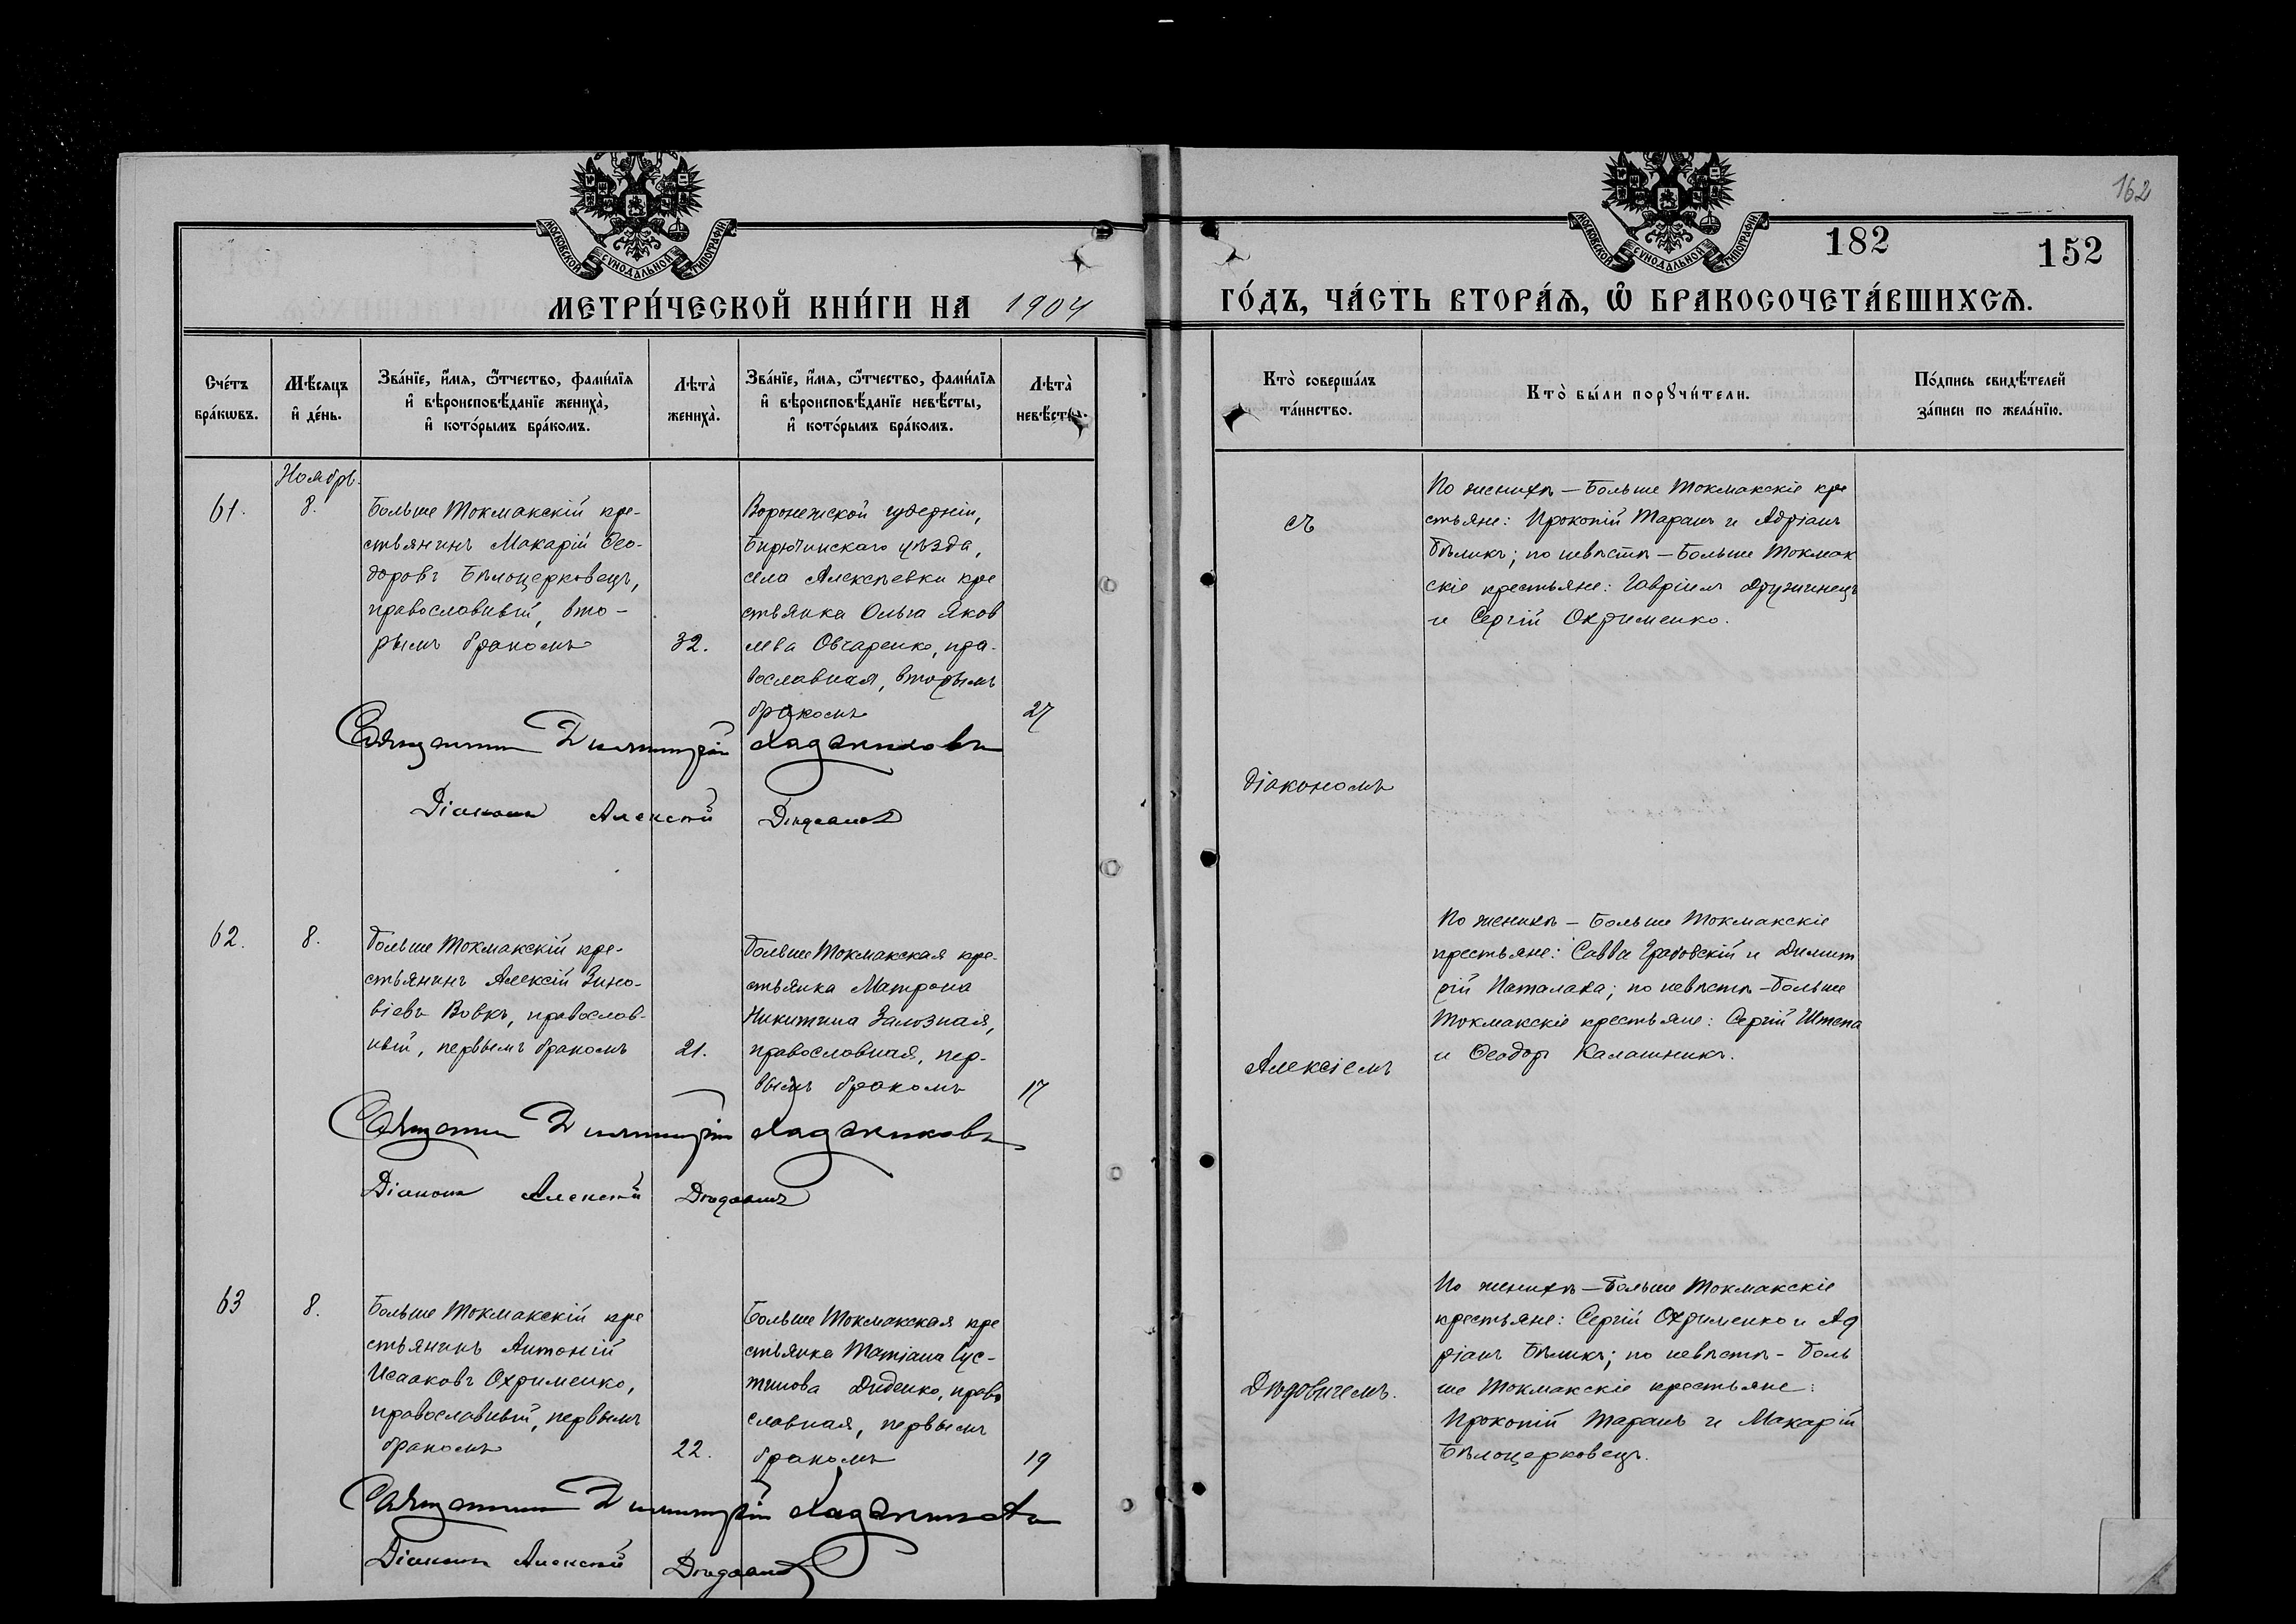 162
182
152
МОСКОВСКОЙ СѴНОДАЛЬНОЙ ТИПОГРАФІИ
МОСКОВСКОЙ СѴНОДАЛЬНОЙ ТИПОГРАФІИ
МЕТРИ́ЧЕСКОЙ КНИ́ГИ НА 1904
ГО́ДЪ, ЧА́СТЬ ВТОРА́Ѧ, Ѽ БРАКОСОЧЕТА́ВШИХСѦ.
Сче́тъ бра́кѡвъ.
Мѣ́сяцъ и҆ де́нь.
Зва́нїе, и҆́мѧ, ѻ҆́тчество, фами́лїѧ
и҆ вѣроисповѣ́данїе жениха̀,
и҆ кото́рымъ бра́комъ.
Лѣ́та̀ жениха̀.
Зва́нїе, и҆́мѧ, ѻ҆́тчество, фами́лїѧ
и҆ вѣроисповѣ́данїе невѣ́сты,
и҆ кото́рымъ бра́комъ.
Лѣ́та̀ невѣ́сты.
Кто̀ соверша́лъ
та́инство.
Кто̀ бы́ли порꙋчи́тели.
По́дпись свидѣ́телей
за́писи по жела́нїю.
Ноябрь.
61.
8.
Больше Токмакскій кре-
стьянинъ Макарій Ѳео-
доровъ Бѣлоцерковецъ,
православный, вто-
рымъ бракомъ
32.
Воронежской губерніи,
Бирючинскаго уѣзда,
села Алексѣевки кре
стьянка Ольга Яков
лева Овчаренко, пра-
вославная, вторымъ
бракомъ
27
съ
По женихѣ – Больше Токмакскіе кре
стьяне: Прокопій Таранъ и Адріанъ
Бѣликъ; по невѣстѣ – Больше Токмак
скіе крестьяне: Гавріилъ Дружинецъ
и Сергій Охрименко.
Священникъ Димитрій Хаджиновъ
Діаконъ Алексій
діакономъ
62.
8.
Больше Токмакскій кре-
стьянинъ Алексій Зино-
віевъ Вовкъ, православ-
ный, первымъ бракомъ
21.
Больше Токмакская кре-
стьянка Матрона
Никитина Залозная,
православная, пер-
вымъ бракомъ
17
Алексіемъ
По женихѣ – Больше Токмакскіе
крестьяне: Савва Грабовскій и Димит
рій Паталаха; по невѣстѣ – Больше
Токмакскіе крестьяне: Сергій Штепа
и Ѳеодоръ Калашникъ.
Священникъ Димитрій Хаджиновъ
Діаконъ Алексій
63
8.
Больше Токмакскій кре
стьянинъ Антоній
Исааковъ Охрименко,
православный, первымъ
бракомъ
22.
Больше Токмакская кре
стьянка Татіана Іус-
тинова Диденко, право
славная, первымъ
бракомъ
19
По женихѣ – Больше Токмакскіе
крестьяне: Сергій Охрименко и Ад
ріанъ Бѣликъ; по невѣстѣ – Боль
ше Токмакскіе крестьяне:
Прокопій Таранъ и Макарій
Бѣлоцерковецъ.
Священникъ Димитрій Хаджиновъ
Діаконъ Алексій